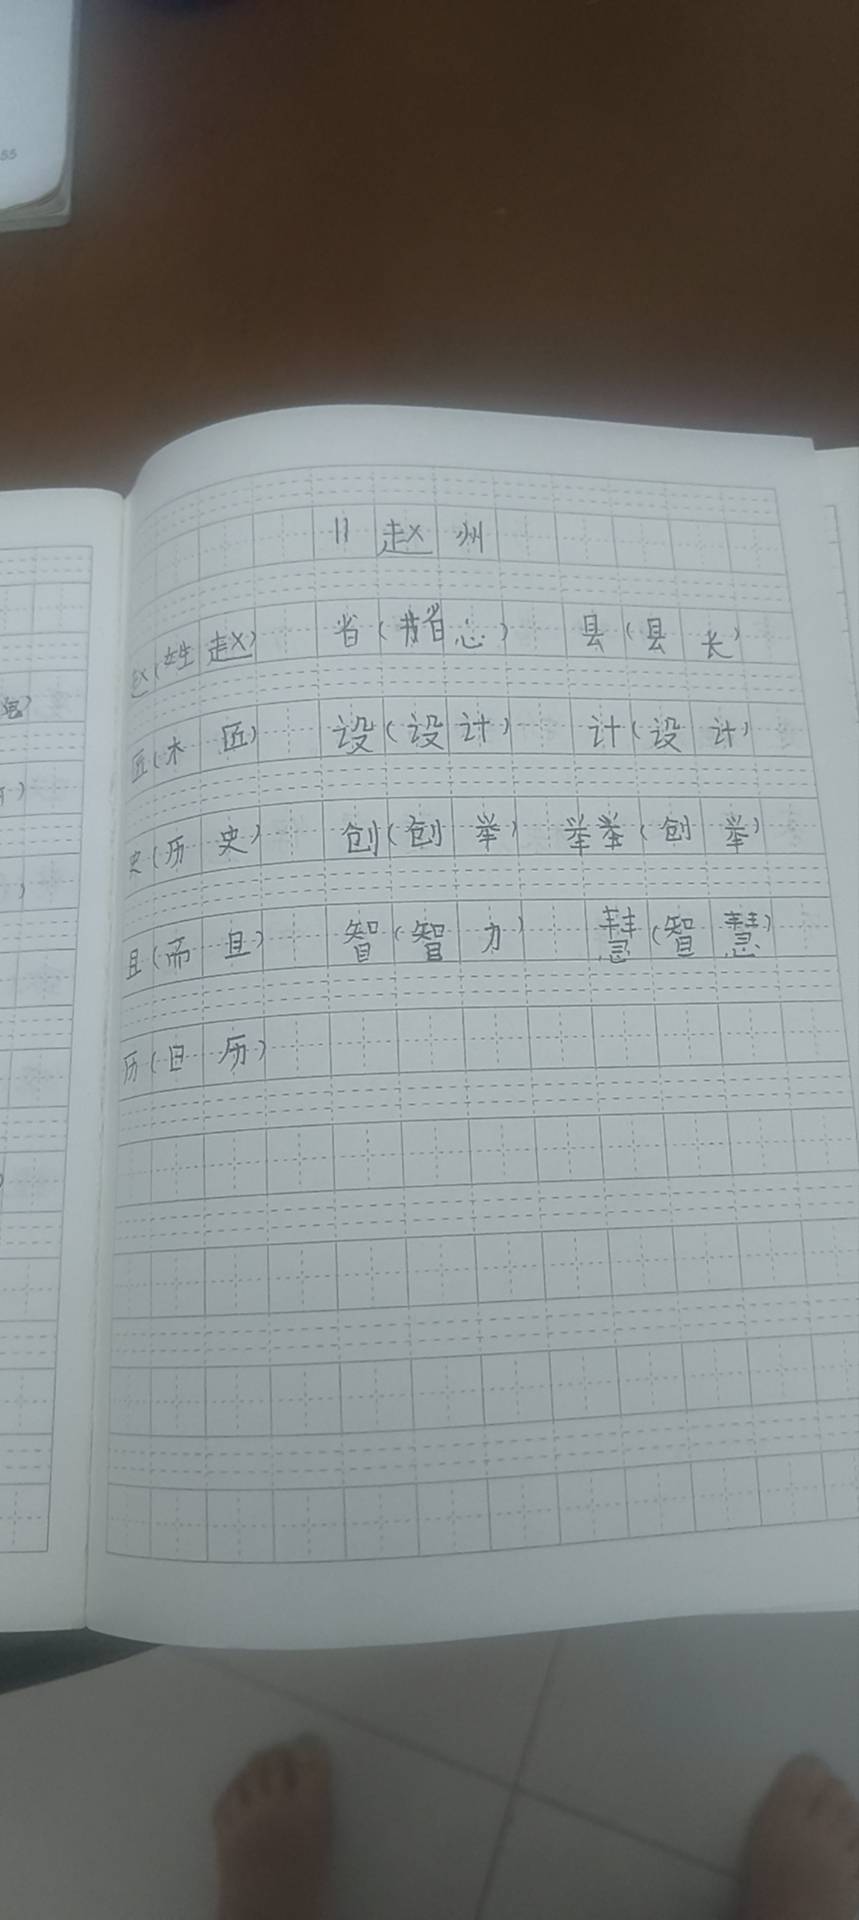 55
11 赵 州
赵(姓赵) 省(省心) 县(县长)
匠(木匠) 设(设计) 计(设计)
史(历史) 创(创举) 举举(创举)
且(而且) 智(智力) 慧(智慧)
历(日历)